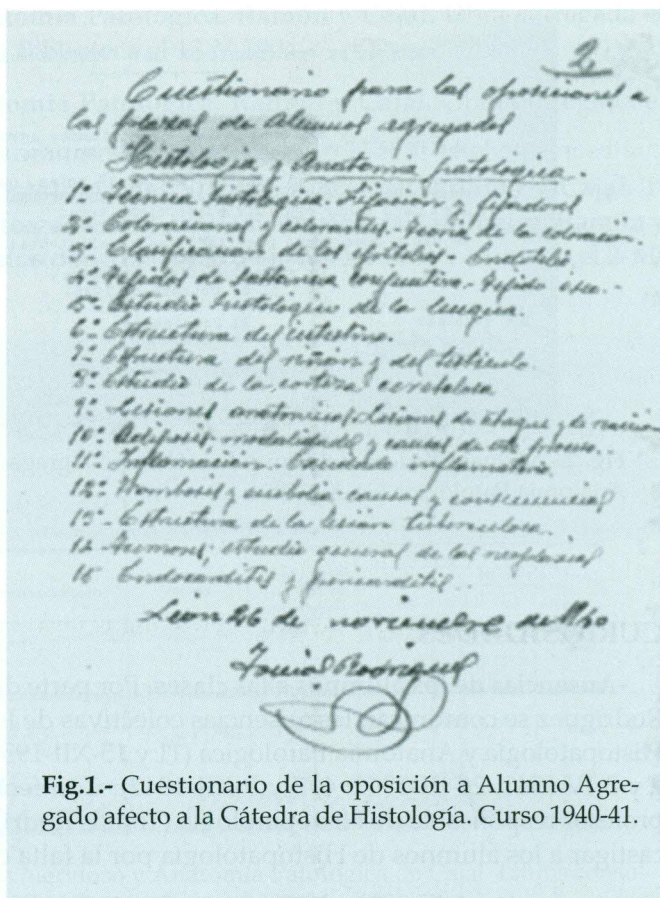 2
Cuestionario para las oposiciones a
las plazas de Alumnos agregados
Histología y Anatomía patológica.
1º Técnica histológica. Fijación y fijadores
2º Coloraciones y colorantes. Teoría de la coloración.
3º Clasificación de los epitelios - Endotelio
4º Tejidos de sustancia conjuntiva - Tejido oseo.-
5º Estudio histológico de la lengua.
6º Estructura del intestino.
7º Estructura del riñón y del testículo.
8º Estudio de la corteza cerebelosa
9º Lesiones anatomicas. Lesiones de ataque y de reacción
10º modalidades y causas de este proceso.
11º Inflamación. Exudado inflamatorio
12º Trombosis y embolia - causas y consecuencias
13º Estructura de la lesión tuberculosa.
14 Tumores; estudio general de las neoplasias
15 Endocarditis y pericarditis.
León 26 de noviembre de 1940
Tomás Rodríguez
Fig.1.- Cuestionario de la oposición a Alumno Agre-
gado afecto a la Cátedra de Histología. Curso 1940-41.